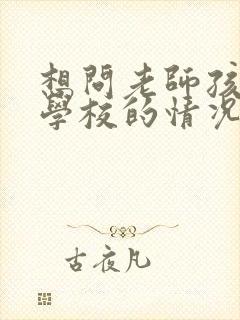 想問老師孩
學校的情況
古夜凡